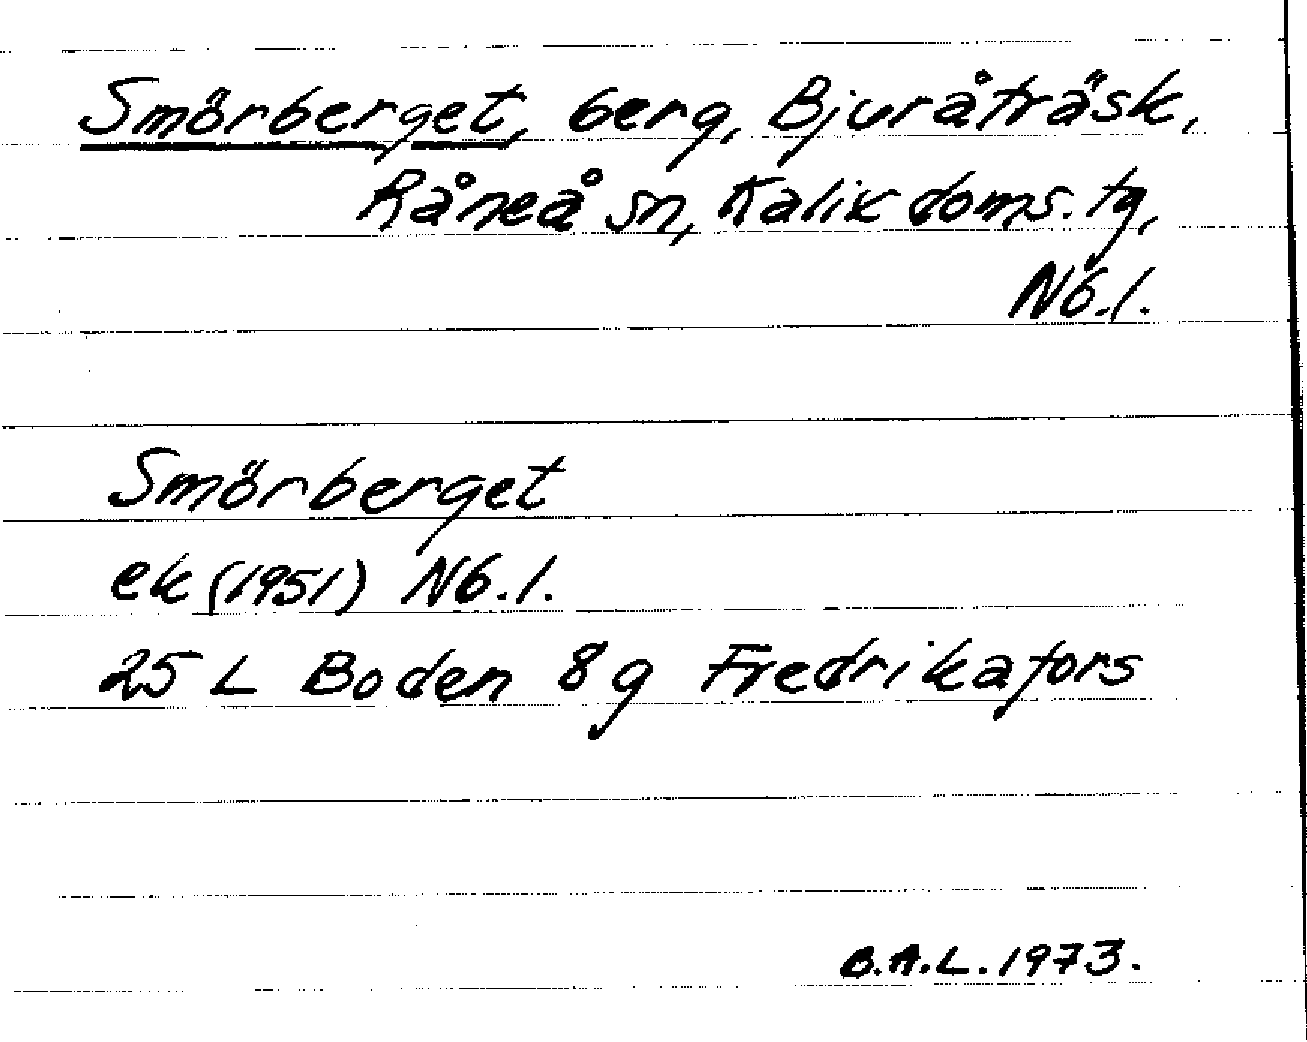 Smörberget, berg, Bjuråträsk,
Råneå sn, Kalix doms.tg,
Nb.l.
Smörberget
ek (1951) Nb.l.
25 L Boden 8 g Fredrikafors
B.A.L. 1973.